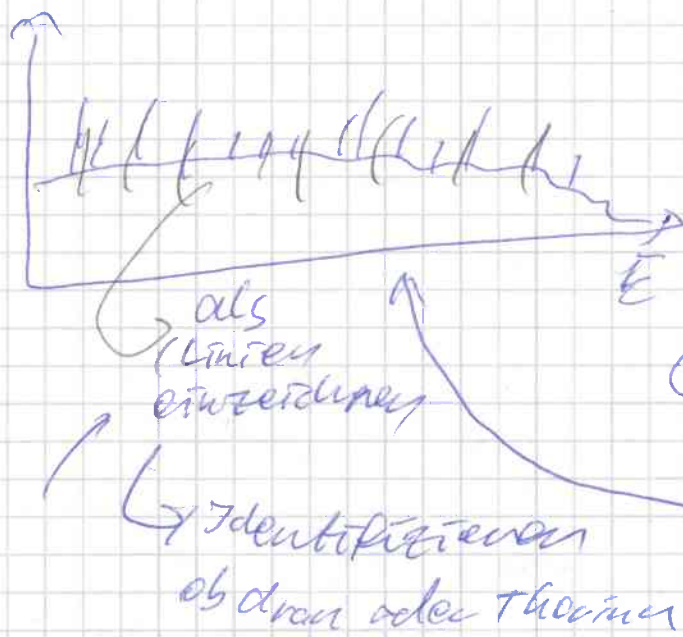 E
als
Linien
einzeichnen
Identifizieren
ob Uran oder Thorium